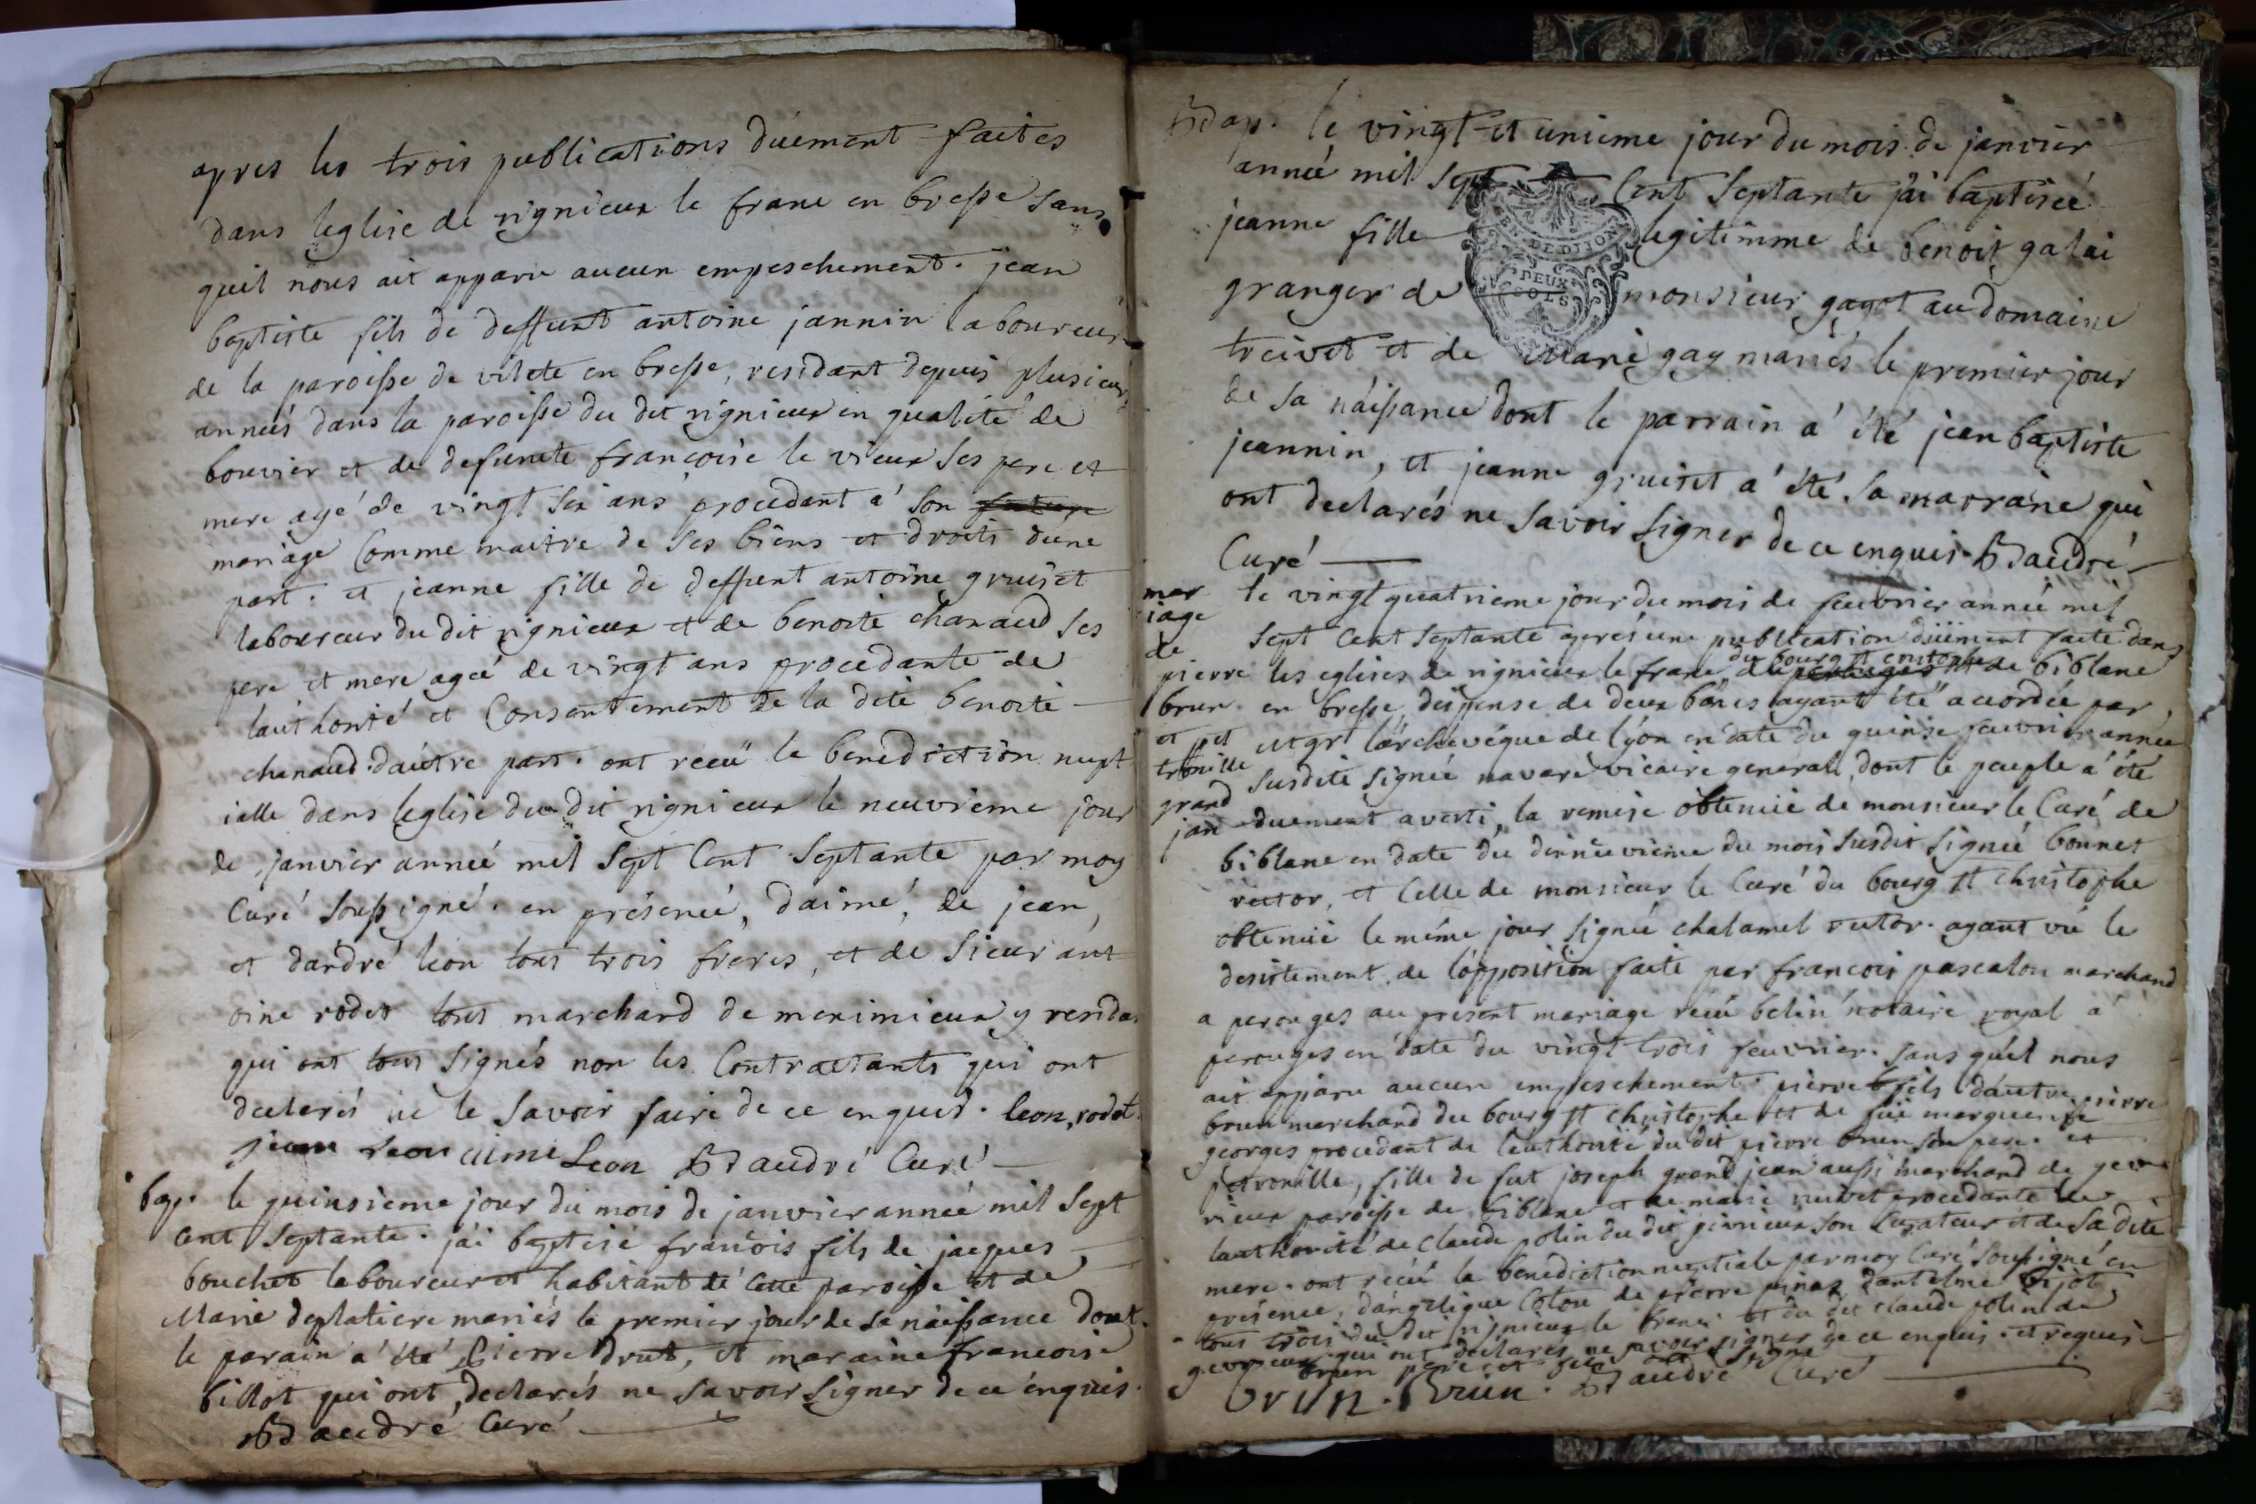 apres les trois publications düement faites
dans leglise de rignieux le franc en bresse sans
quil nous ait apparu aucun empeschement. jean
baptiste fils de deffunt antoine jannin laboureur
de la paroisse de vilete en bresse, residant depuis plusieurs
années dans la paroisse du dit rignieux en qualité de
bouvier et de defuncte françoise le vieux ses pere et
mere agé de vingt six ans procedant a son
mariage Comme maitre de ses biens et droits dune
part. et jeanne fille de deffunt antoine gruiset
laboureur du dit rignieux et de benoite chanaud ses
pere et mere ageé de vingt ans procedante de
lauthorité et Consentement de la dite benoite
chanaud. dautre part. ont recü la benediction nupt
ialle dans leglise du dit rignieux le neuvieme jour
de janvier anneé mil sept Cent Septante par moy
Curé soussigné. en présence, daimé, de jean,
et dandré leon tous trois freres, et de sieur ant
oine rodet tous marchand de meximieux y resida
qui ont tous signés non les Contractants qui ont
declarés ne le savoir faire de ce enquis. leon, rodet.
jean leon aimé Leon Bdaudré Curé
bap. le quinsieme jour du mois de janvier anneé mil sept
Cent Septante. jai baptisé françois fils de jacques
bouchet laboureur et habitant de Cette paroisse et de
Marie deplatiere mariés le premier jour de sa naissance dont
le parain a été pierre drut, et maraine francoise
billot qui ont declarés ne savoir signer de ce enquis.
Bdaudré Curé
Bdap. le vingt et unieme jour du mois de janvier
anneé mil sept Cent Septante jai baptiseé
jeanne fille legitimme de benoit galai
EN DE DIJON
DEUX SOLS
granger de monsieur gayot au domaine
treivet et de Marie gay mariés le premier jour
de sa náissance dont le parrain a été jean baptiste
jeannin, et jeanne gruiset a été sa marraine qui
ont declarés ne savoir signer de ce enquis. Bdaudré
Curé
mar
iage
de
pierre
brun.
et pet
tronille
grand
jan
le vingt quatrieme jour du mois de feuvrier anneé mil
sept Cent septante apres une publication düement faite dans
du bourg st cristophe
les eglises de rignieux le franc, et de biblane
en bresse, dispense de deux bans ayant été accordée par
Mgr larchevéque de lyon en date du quinse feuvrier anneé
susdite signeé navare vicaire general, dont le peuple a été
duement averti, la remise obtenüe de monsieur le Curé de
biblane en date du dixneuvieme du mois susdit signeé bonnet
rector, et Celle de monsieur le Curé du bourg st christophe
obtenüe le méme jour signeé chalamel rector. ayant vü le
desistement de lopposition faite par francois pascalon marchand
a perouges au présent mariage recü belin notaire royal a
perouges en date du vingt trois feuvrier. sans quil nous
ait apparu aucun empeschement. pierre fils dautre pierre
brun marchand du bourg st christophe et de füe marguerite
georges procedant de lauthorité du dit pierre brun son pere. et
petronille, fille de fut joseph grand jean aussi marchand de gevr
rieux paroisse de biblane et de marie nuivet procedante de
lauthorité de Claude polin du dit givrieux son Curateur et de sa dite
mere. ont recü la benediction nuptiale par moy Curé soussigné en
presence, dangelique Coton de pierre pinaz dantelme bijot
tous trois du dit rignieux le franc. et du dit claude polin de
gevrieux qui ont declarés ne savoir signer de ce enquis. et requis
brun pere et fils ont signé
brun. brun. Bdaudré Curé